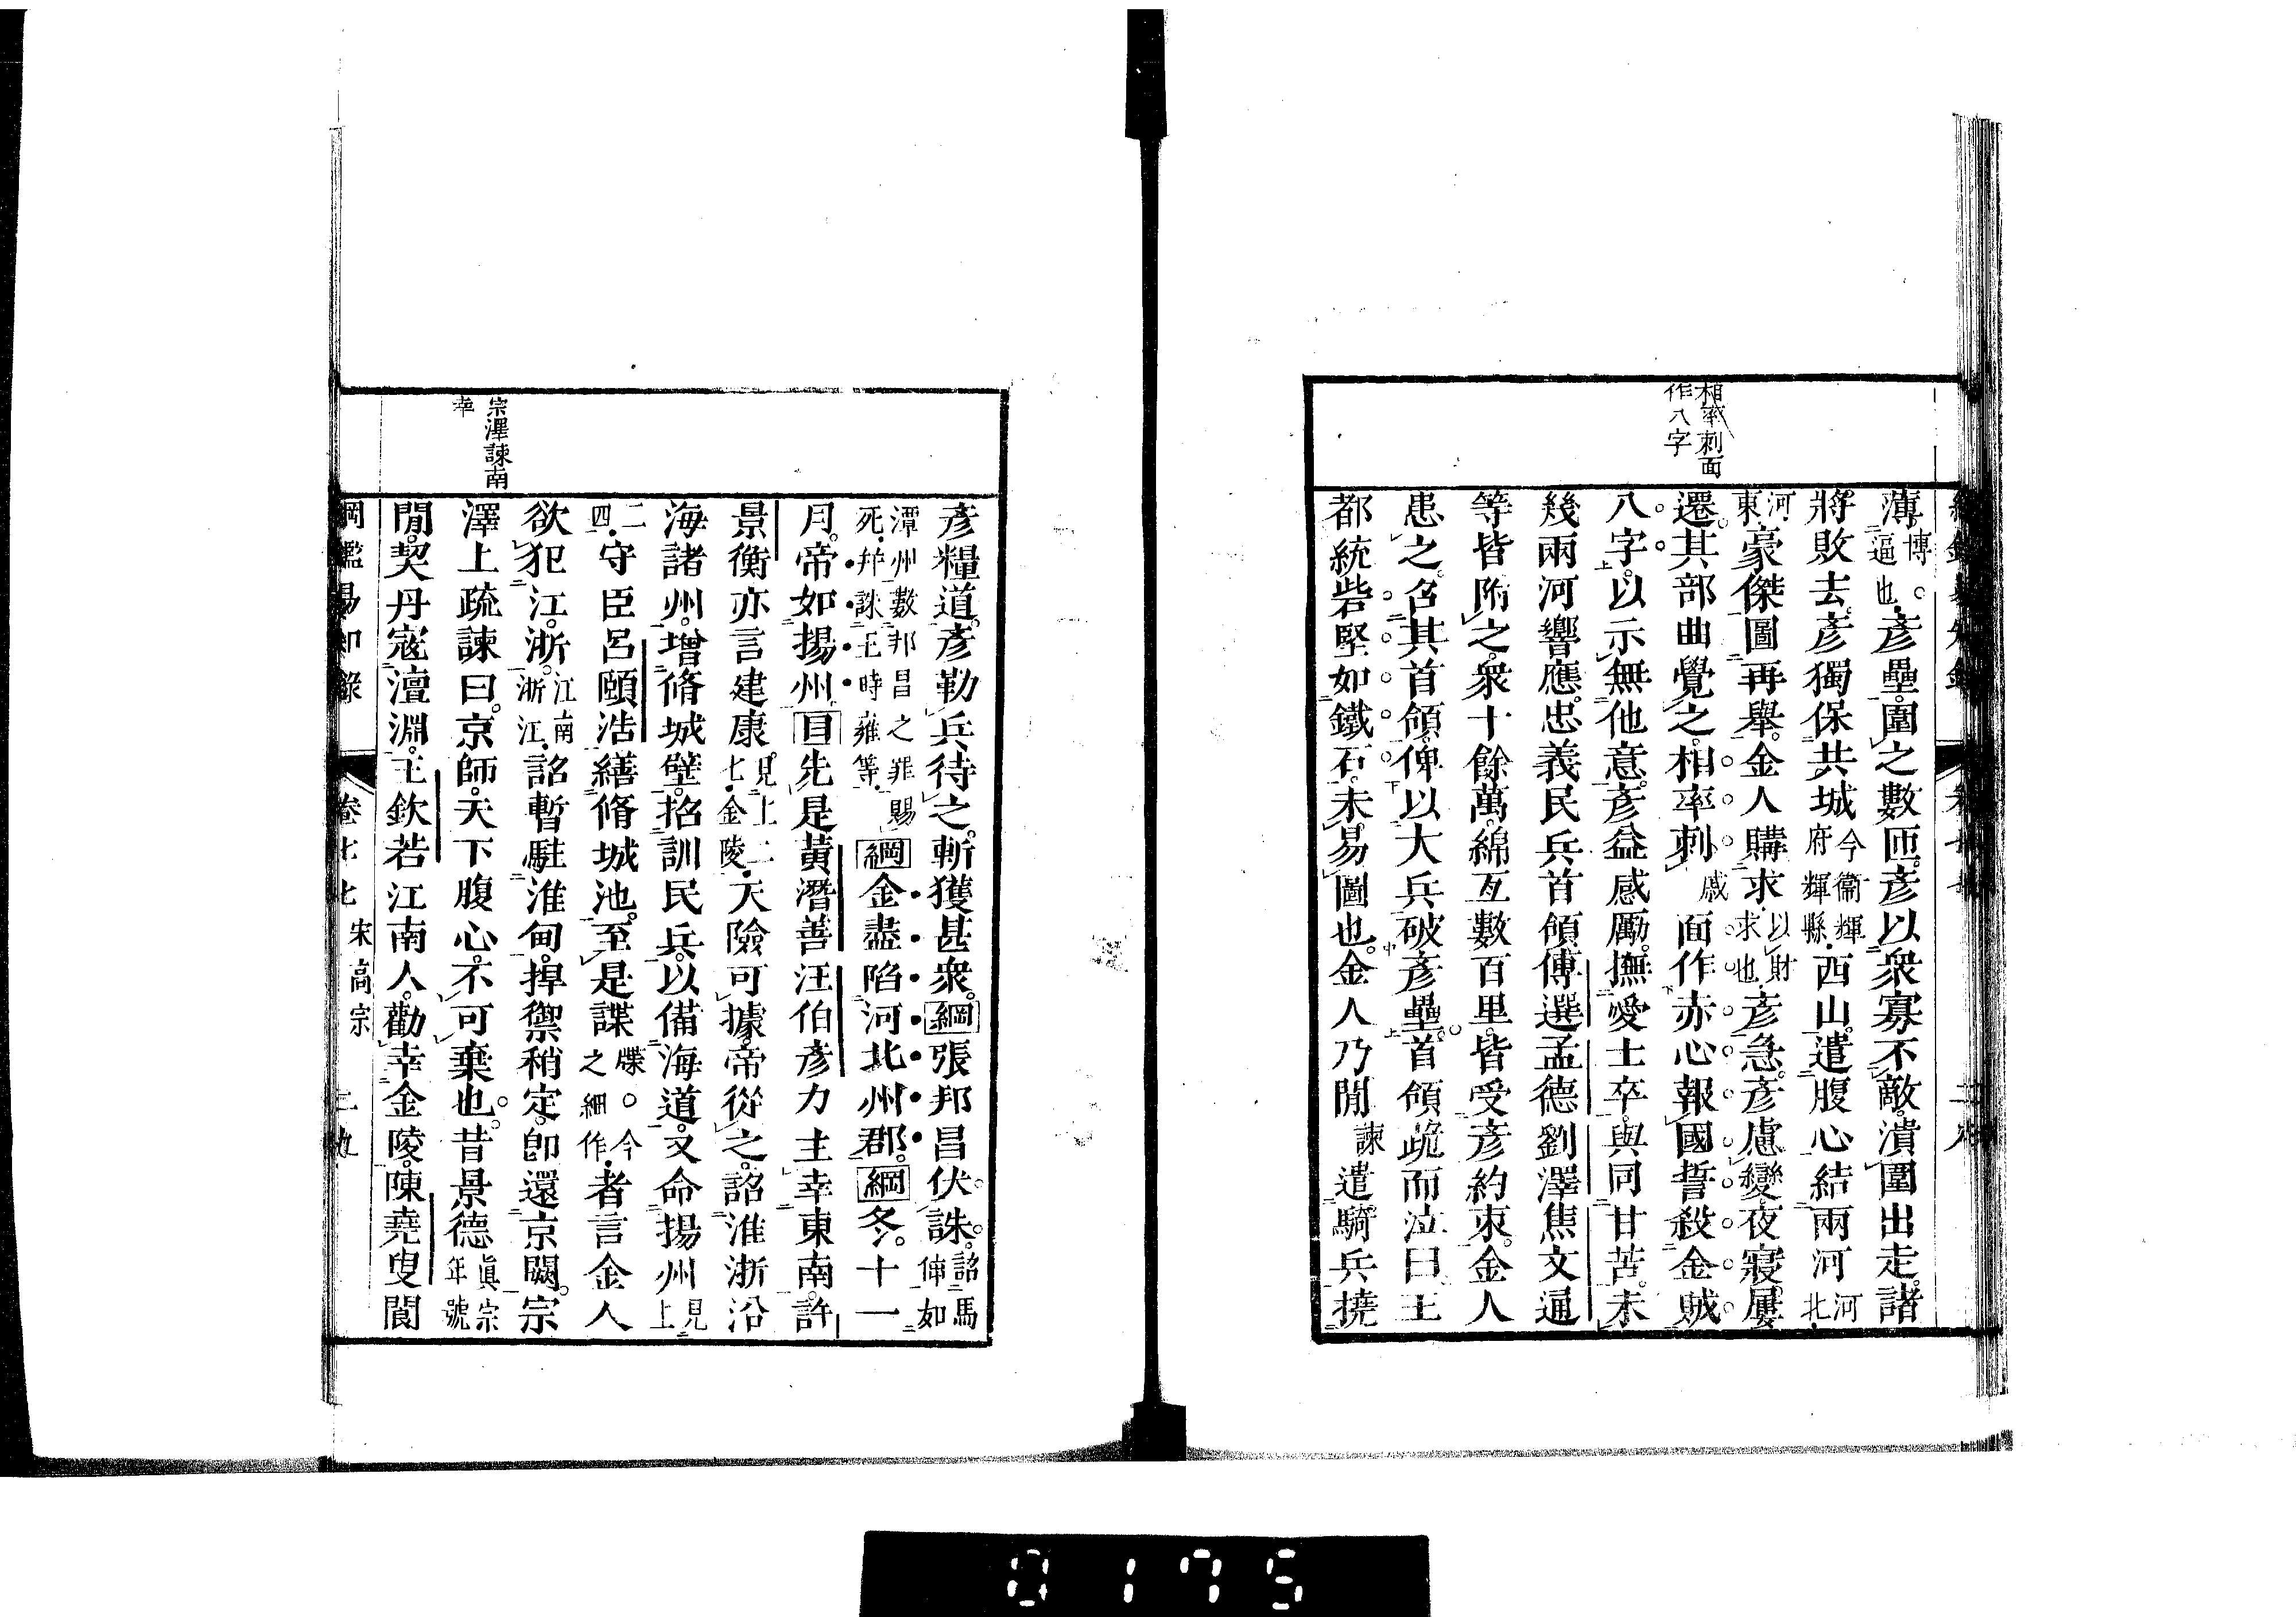 相率刺面
作八字
薄博。逼也。彥壘。圍之數匝。彥以衆寡不敵。潰圍出走。諸
將敗去。彥獨保共城今衞輝府輝縣。西山。遣腹心結兩河河北。
河東。豪傑圖再舉。金人購求以財求也。彥急。彥慮變。夜寢。屢
遷。其部曲覺之。相率刺戚面作赤心報國誓殺金賊
八字。以示無他意。彥益感勵。撫愛士卒。與同甘苦。未
幾兩河響應。忠義民兵首領傅選孟德劉澤焦文通
等皆附之。衆十餘萬。綿亙數百里。皆受彥約束。金人
患之。召其首領。俾以大兵破彥壘。首領跪而泣曰。王
都統砦堅如鐵石。未易圖也。金人乃閒諫遣騎兵撓
宗澤諫南
幸
彥糧道。彥勒兵待之。斬獲甚衆。綱張邦昌伏誅。詔馬伸如
潭州數邦昌之罪賜死。幷誅王時雍等。綱金盡陷河北州郡。綱冬。十一
月。帝如揚州。目先是黃潛善汪伯彥力主幸東南。許
景衡亦言建康見上二七。金陵。天險可據。帝從之。詔淮浙沿
海諸州。增脩城壁。招訓民兵。以備海道。又命揚州見上
二四。守臣呂頤浩繕脩城池。至是諜牒。○今之細作。者言金人
欲犯江。浙。江南浙江。詔暫駐淮甸。捍禦稍定。卽還京闕。宗
澤上疏諫曰。京師。天下腹心。不可棄也。昔景德眞宗年號
閒。契丹寇澶淵。王欽若江南人。勸幸金陵。陳堯叟閬
綱鑑易知錄 卷七七 宋高宗 二九